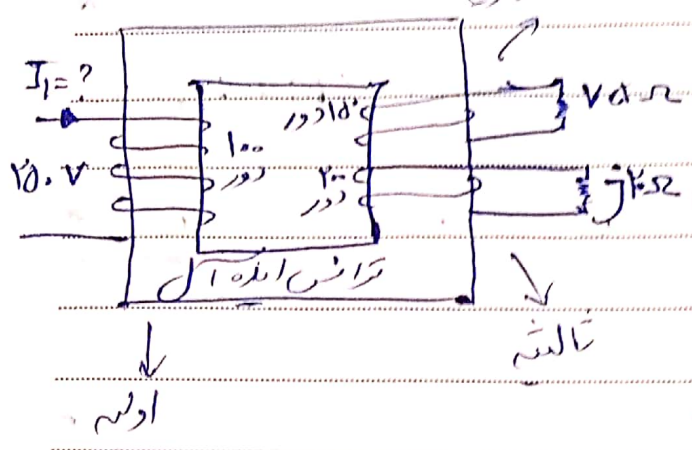 I₁ = ?
۲۵۰ V
۱۰۰
دور
۱۵۰ دور
۲۰۰
دور
۷۵ Ω
j۲۰ Ω
ترانس ایده آل
ثالثیه
اولیه